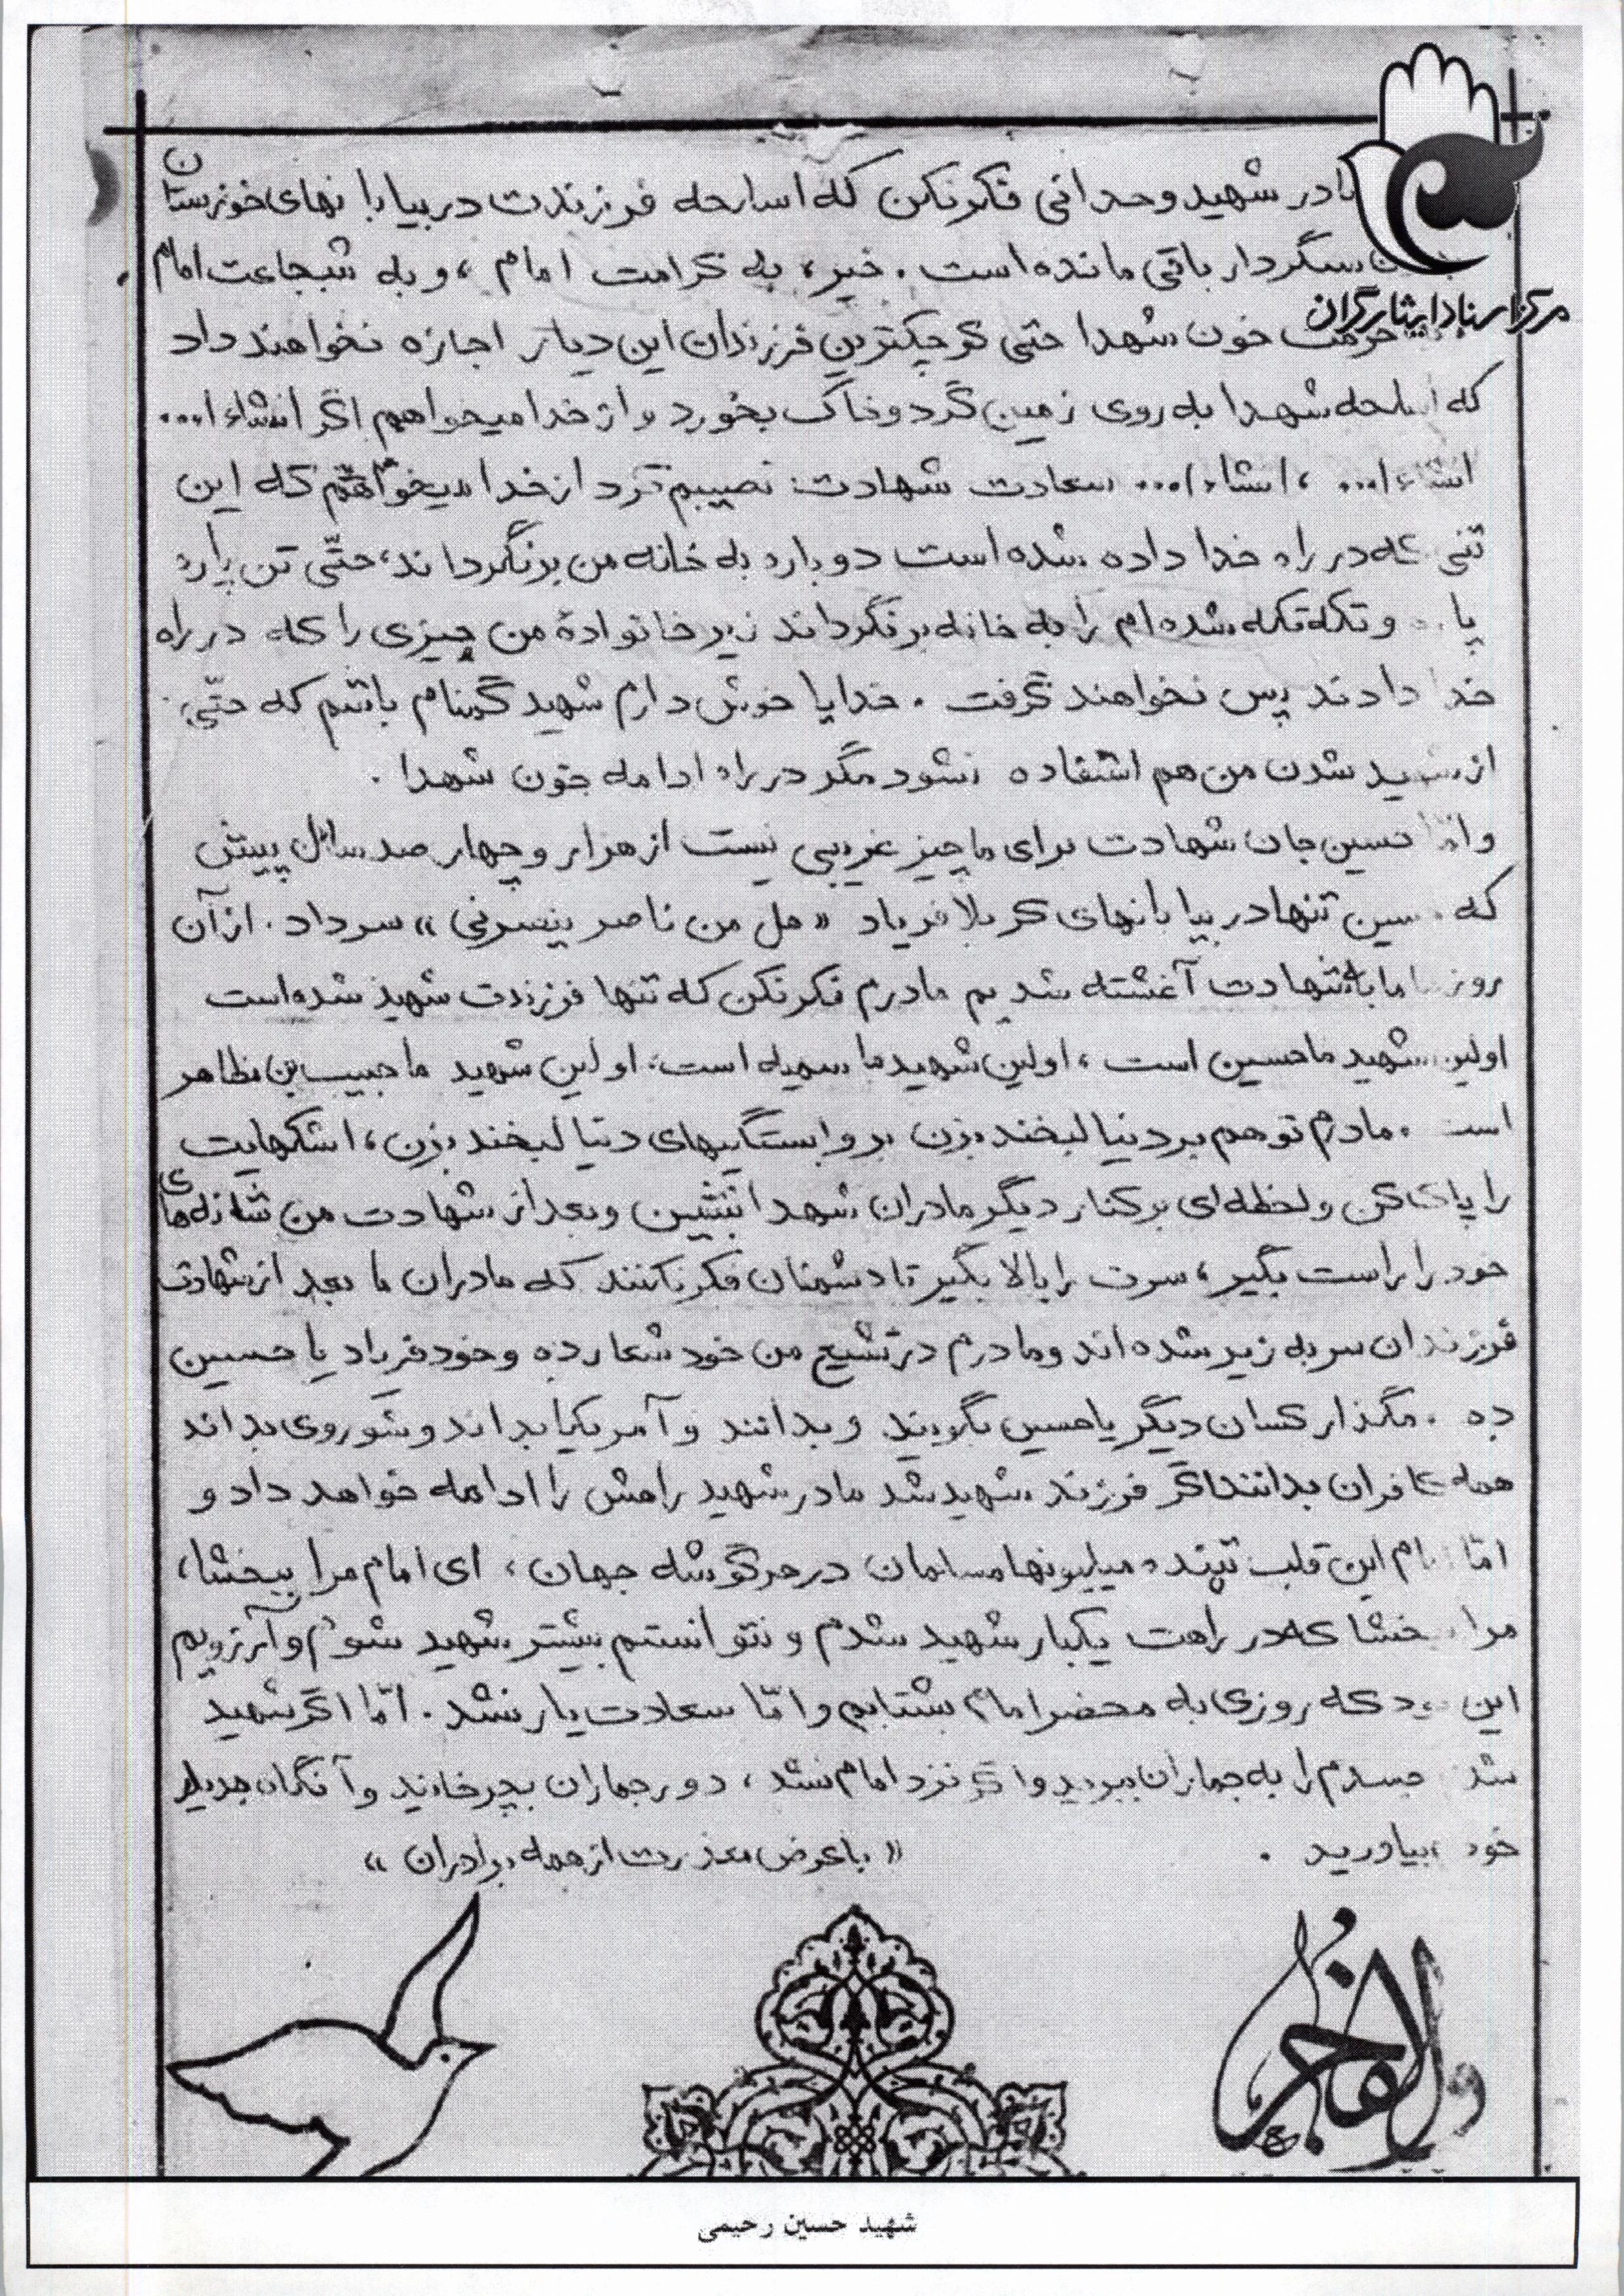 مادر شهید وحدانی فکر نکن که اسلحه فرزندت در بیابانهای خوزستان
سنگر دار باقی مانده است . خیر ، به کرامت امام ، و به شجاعت امام .
مرکز اسناد ایثارگران
حرمت خون شهدا حتی کوچکترین فرزندان این دیار اجازه نخواهند داد
که اسلحه شهدا به روی زمین گرد و خاک بخورد و از خدا میخواهم اگر انشاءا...
انشاءا... ، انشاءا... سعادت شهادت نصیبم کرد از خدا میخواهم که این
تنی که در راه خدا داده شده است دوباره به خانه من برنگرداند ، حتّی تن پاره
پاره و تکه تکه شده ام را به خانه برنگرداند زیرا خانوادهٔ من چیزی را که در راه
خدا دادند پس نخواهند گرفت . خدایا خوش دارم شهید گمنام باشم که حتّی
از شهید شدن من هم استفاده نشود مگر در راه ادامه خون شهدا .
و امّا حسین جان شهادت برای ما چیز غریبی نیست از هزار و چهار صد سال پیش
که حسین تنها در بیابانهای کربلا فریاد « هل من ناصر ینصرنی » سر داد . از آن
روز ما با شهادت آغشته شدیم مادرم فکر نکن که تنها فرزندت شهید شده است
اولین شهید ما حسین است ، اولین شهید ما سمیه است ، اولین شهید ما حبیب بن مظاهر
است . مادرم تو هم بر دنیا لبخند بزن بر وابستگیهای دنیا لبخند بزن ، اشکهایت
را پاک کن و لحظه ای بر کنار دیگر مادران شهدا بنشین و بعد از شهادت من شانه های
خود را راست بگیر ، سرت را بالا بگیر تا دشمنان فکر نکنند که مادران ما بعد از شهادت
فرزندان سر به زیر شده اند و مادرم در تشیع من خود شعار ده و خود فریاد یا حسین
ده . مگذار کسان دیگر یا حسین بگویند و بدانند و آمریکا بداند و شوروی بداند
همه کافران بدانند اگر فرزند شهید شد مادر شهید راهش را ادامه خواهد داد و
امّا امام این قلب تپنده میلیونها مسلمان در هر گوشه جهان ، ای امام مرا ببخشا ،
مرا ببخشا که در راهت یکبار شهید شدم و نتوانستم بیشتر شهید شوم و آرزویم
این بود که روزی به محضر امام بشتابم و امّا سعادت یار نشد . امّا اگر شهید
شدم جسدم را به جماران ببرید و اگر نزد امام نشد ، دور جماران بچرخانید و آنگاه به دیار
خود بیاورید .
« با عرض معذرت از همه برادران »
والفجر
شهید حسین رحیمی